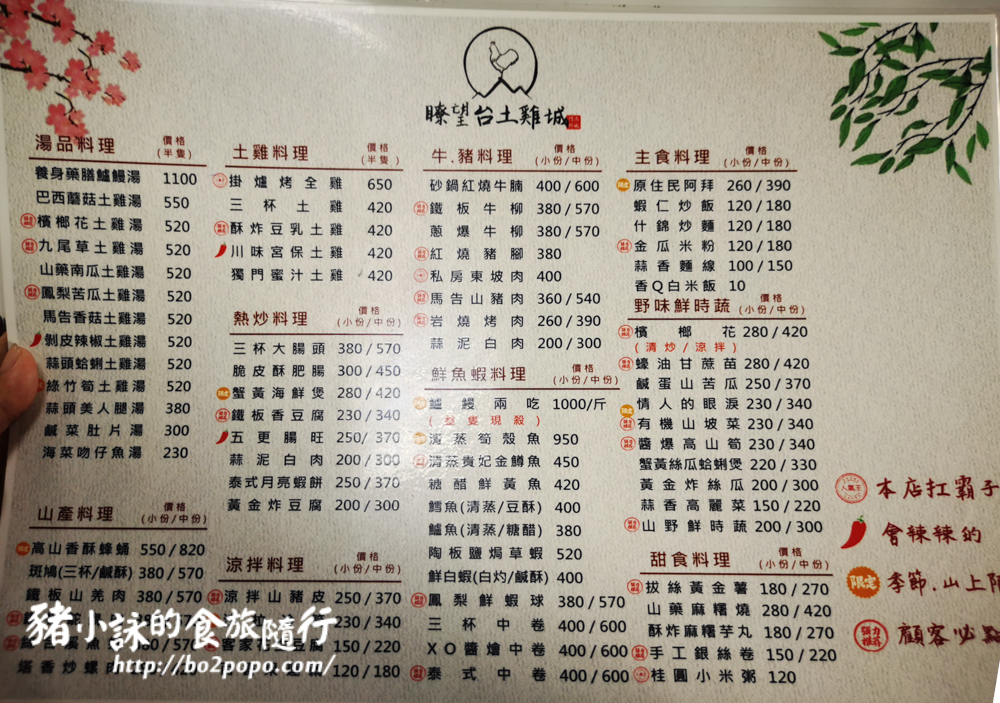 瞭望台土雞城
湯品料理 價格(半隻)
養身藥膳鱸鰻湯 1100
巴西蘑菇土雞湯 550
檳榔花土雞湯 520
九尾草土雞湯 520
山藥南瓜土雞湯 520
鳳梨苦瓜土雞湯 520
馬告香菇土雞湯 520
剝皮辣椒土雞湯 520
蒜頭蛤蜊土雞湯 520
綠竹筍土雞湯 520
蒜頭美人腿湯 380
鹹菜肚片湯 300
海菜吻仔魚湯 230
山產料理 價格(小份/中份)
高山香酥蜂蛹 550/820
斑鳩(三杯/鹹酥) 380/570
鐵板山羌肉 380/570
380/570
塔香炒螺肉
土雞料理 價格(半隻)
掛爐烤全雞 650
三杯土雞 420
酥炸豆乳土雞 420
川味宮保土雞 420
獨門蜜汁土雞 420
熱炒料理 價格(小份/中份)
三杯大腸頭 380/570
脆皮酥肥腸 300/450
蟹黃海鮮煲 280/420
鐵板香豆腐 230/340
五更腸旺 250/370
蒜泥白肉 200/300
泰式月亮蝦餅 250/370
黃金炸豆腐 200/300
涼拌料理 價格(小份/中份)
涼拌山豬皮 250/370
230/340
客家 豆腐 150/220
120/180
牛.豬料理 價格(小份/中份)
砂鍋紅燒牛腩 400/600
鐵板牛柳 380/570
蔥爆牛柳 380/570
紅燒豬腳 380
私房東坡肉 400
馬告山豬肉 360/540
岩燒烤肉 260/390
蒜泥白肉 200/300
鮮魚蝦料理 價格(小份/中份)
鱸鰻兩吃 1000/斤
(整隻現殺)
清蒸筍殼魚 950
清蒸貴妃金鱒魚 450
糖醋鮮黃魚 420
鱈魚(清蒸/豆酥) 400
鱸魚(清蒸/糖醋) 380
陶板鹽焗草蝦 520
鮮白蝦(白灼/鹹酥) 400
鳳梨鮮蝦球 380/570
三杯中卷 400/600
XO醬燴中卷 400/600
泰式中卷 400/600
主食料理 價格(小份/中份)
原住民阿拜 260/390
蝦仁炒飯 120/180
什錦炒麵 120/180
金瓜米粉 120/180
蒜香麵線 100/150
香Q白米飯 10
野味鮮時蔬 價格(小份/中份)
檳榔花 280/420
(清炒/涼拌)
蠔油甘蔗苗 280/420
鹹蛋山苦瓜 250/370
情人的眼淚 230/340
有機山坡菜 230/340
醬爆高山筍 230/340
蟹黃絲瓜蛤蜊煲 220/330
黃金炸絲瓜 200/300
蒜香高麗菜 150/220
山野鮮時蔬 200/300
甜食料理 價格(小份/中份)
拔絲黃金薯 180/270
山藥麻糬燒 280/420
酥炸麻糬芋丸 180/270
手工銀絲卷 150/220
桂圓小米粥 120
人氣王 本店扛霸子
會辣辣的
限定 季節.山上限
強力推薦 顧客必點
豬小詠的食旅隨行
http://bo2popo.com/